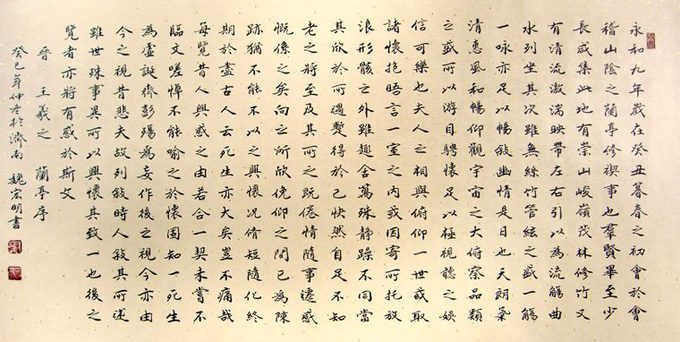 永和九年歲在癸丑暮春之初會於會
稽山陰之蘭亭修禊事也羣賢畢至少
長咸集此地有崇山峻嶺茂林修竹又
有清流激湍映帶左右引以為流觴曲
水列坐其次雖無絲竹管絃之盛一觴
一詠亦足以暢敘幽情是日也天朗氣
清惠風和暢仰觀宇宙之大俯察品類
之盛所以游目騁懷足以極視聽之娛
信可樂也夫人之相與俯仰一世或取
諸懷抱晤言一室之內或因寄所托放
浪形骸之外雖趣舍萬殊靜躁不同當
其欣於所遇暫得於己快然自足不知
老之將至及其所之既倦情隨事遷感
慨係之矣向之所欣俛仰之間已為陳
跡猶不能不以之興懷況脩短隨化終
期於盡古人云死生亦大矣豈不痛哉
每覽昔人興感之由若合一契未嘗不
臨文嗟悼不能喻之於懷固知一死生
為虛誕齊彭殤為妄作後之視今亦由
今之視昔悲夫故列敘時人錄其所述
雖世殊事異所以興懷其致一也後之
覽者亦將有感於斯文
晉 王羲之 蘭亭序
癸巳年仲冬於濟南 魏宏明書